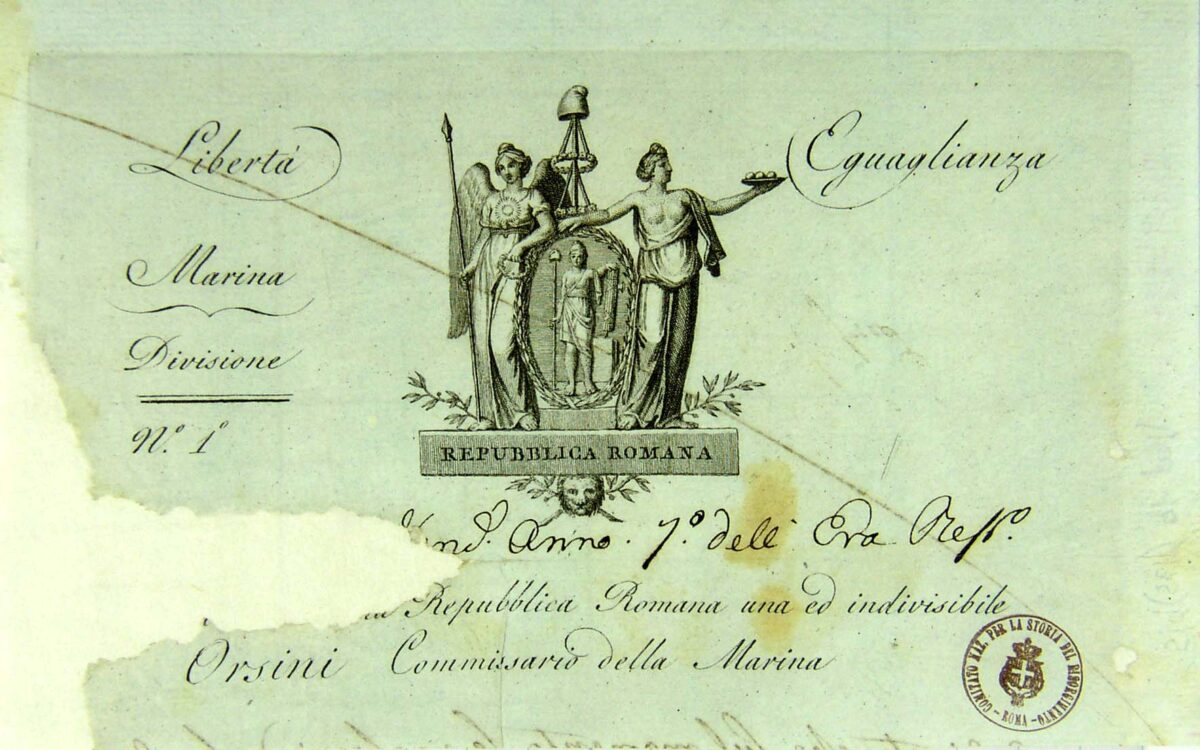 Libertà Eguaglianza
Marina
Divisione
N.º 1º
REPUBBLICA ROMANA
Anno. 7.º dell' Era
Repubblica Romana una ed indivisibile
Orsini Commissario della Marina
COMITATO NAZ. PER LA STORIA DEL RISORGIMENTO
- ROMA -